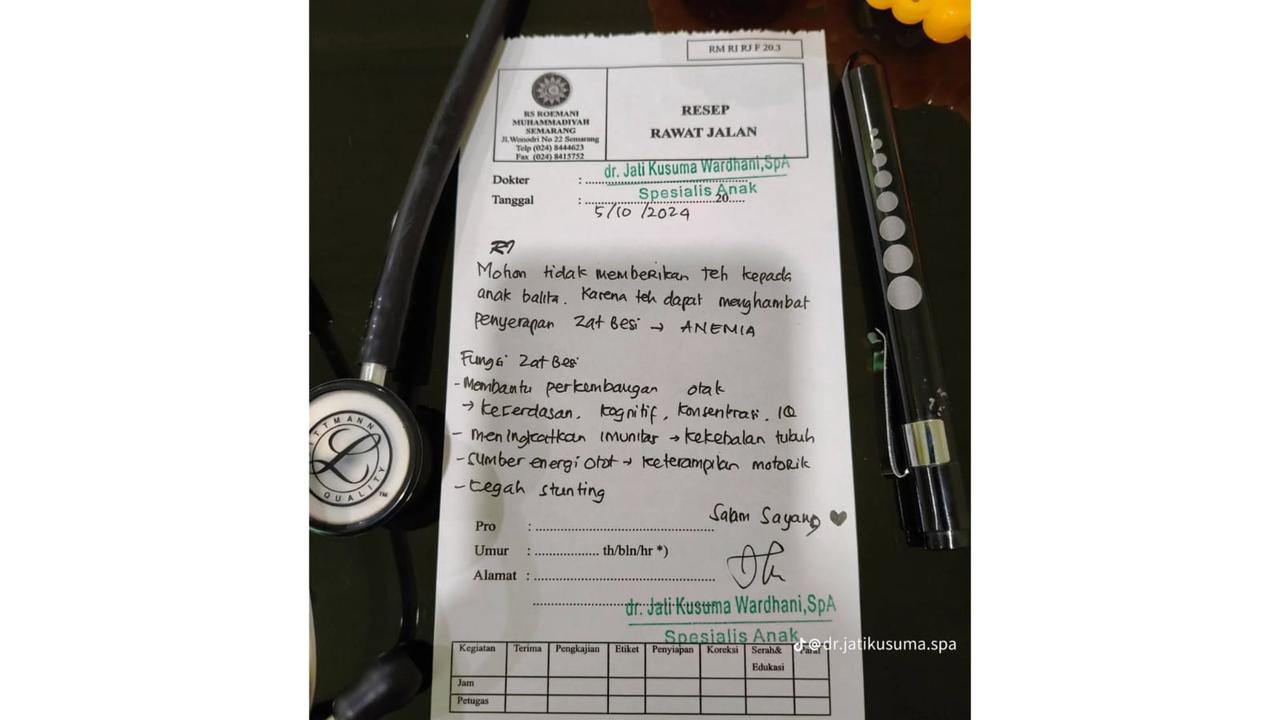 RM RI RJ F 20.3
RS ROEMANI
MUHAMMADIYAH
SEMARANG
Jl.Wonodri No 22 Semarang
Telp (024) 8444623
Fax (024) 8415752
RESEP
RAWAT JALAN
Dokter : dr. Jati Kusuma Wardhani,SpA
Spesialis Anak
Tanggal : 20
5/10/2024
R/
Mohon tidak memberikan teh kepada
anak balita. Karena teh dapat menghambat
penyerapan Zat Besi → ANEMIA
Fungsi Zat Besi
- Membantu perkembangan otak
→ kecerdasan, kognitif, konsentrasi, IQ
- meningkatkan imunitas → kekebalan tubuh
- Sumber energi otot → keterampilan motorik
- Cegah stunting
Salam Sayang ♥
Pro :
Umur : th/bln/hr *)
Alamat :
dr. Jati Kusuma Wardhani,SpA
Spesialis Anak
@dr.jatikusuma.spa
Kegiatan Terima Pengkajian Etiket Penyiapan Koreksi Serah& Edukasi Paraf
Jam
Petugas
LITTMANN
QUALITY
TM